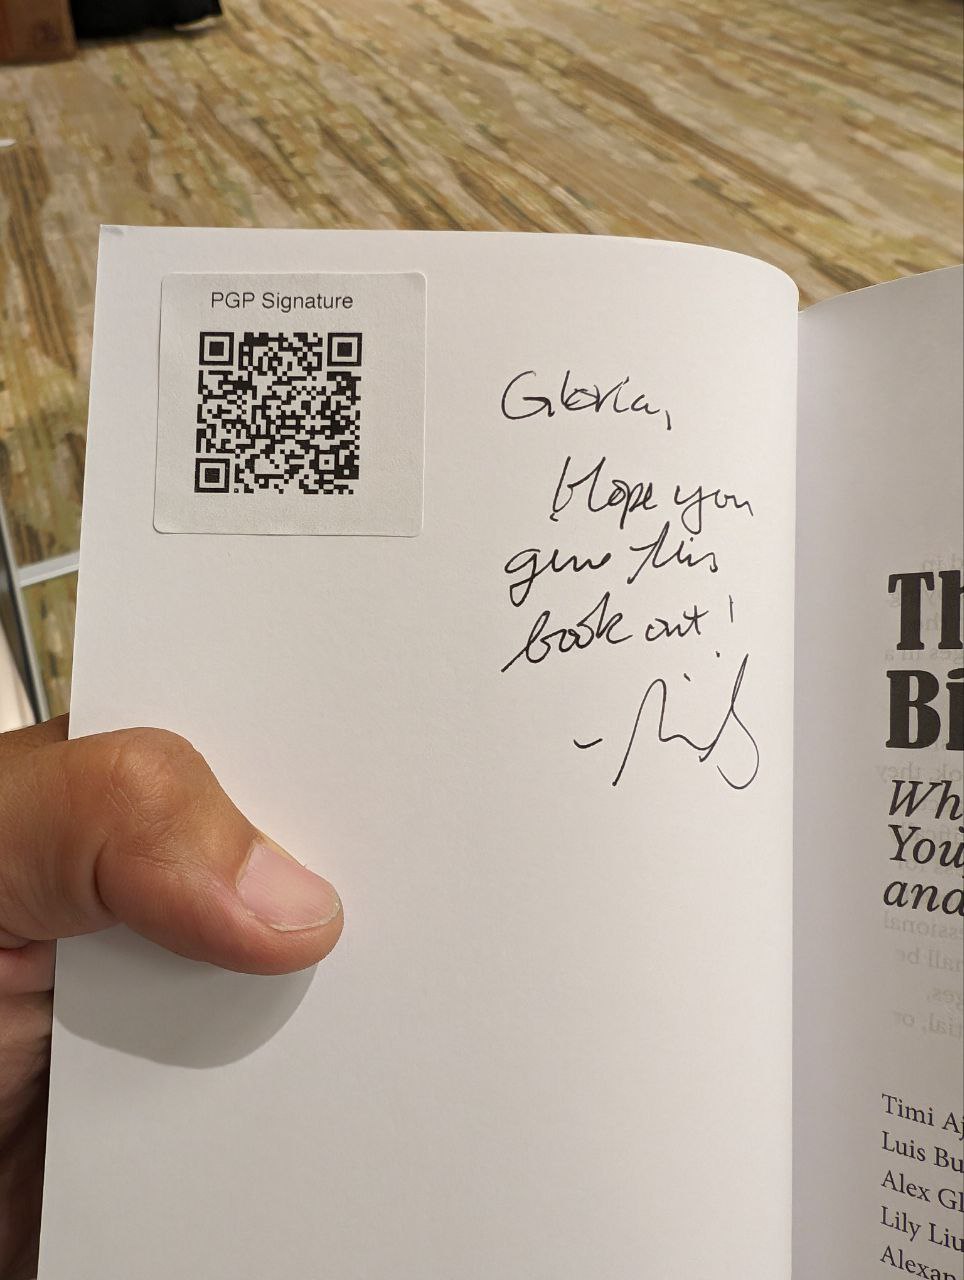 PGP Signature
Gloria,
Hope you
give this
book out!
Th
Bi
Wh
You
and
Timi Aj
Luis Bu
Alex Gl
Lily Liu
Alexan